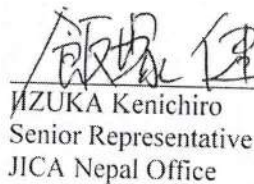 飯塚 健
IIZUKA Kenichiro
Senior Representative
JICA Nepal Office